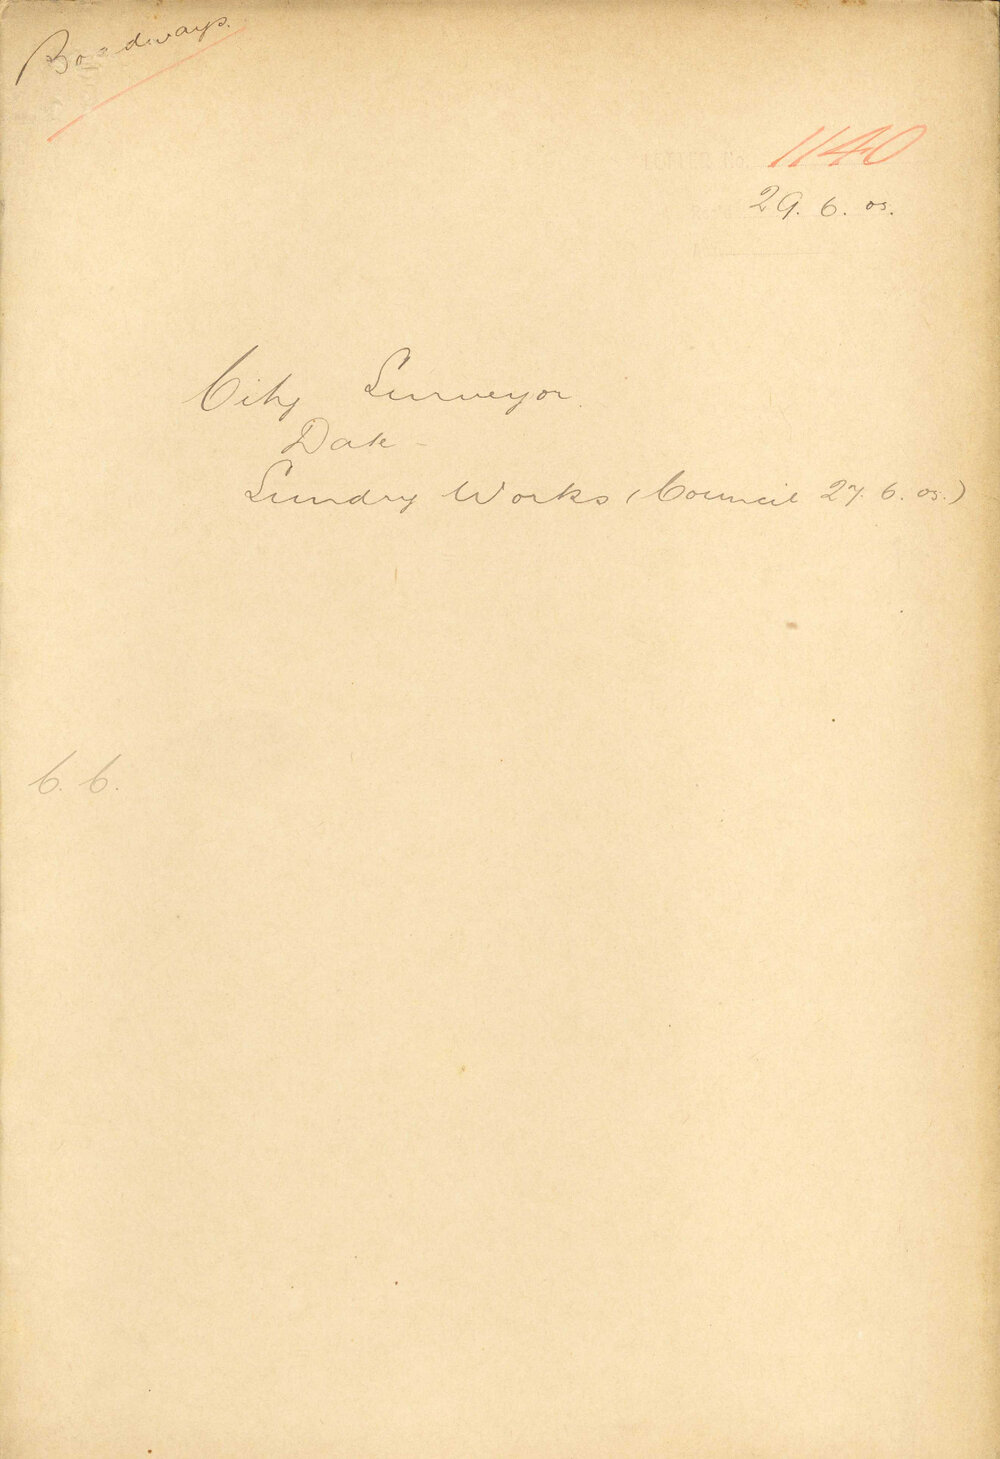 Roadways.
1140
29. 6. 05.
City Surveyor.
Date -
Sundry Works (Council 27. 6. 05.)
C. C.